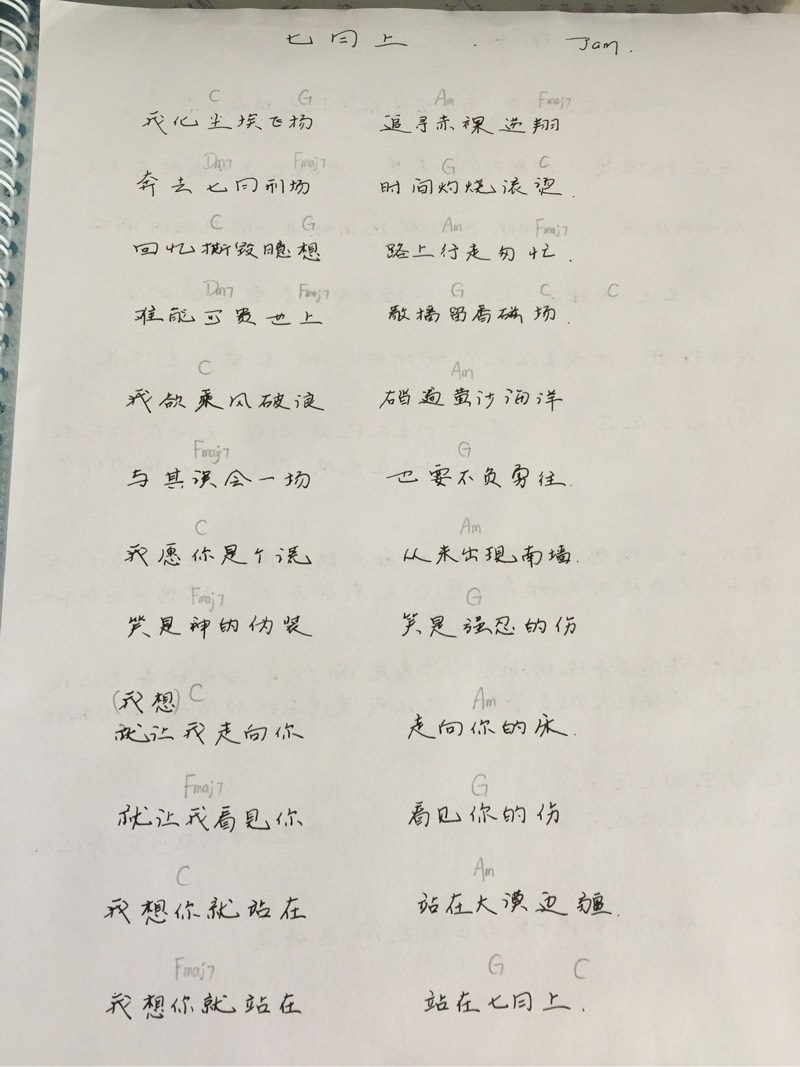 七月上 Jam.
C G Am Fmaj7
我化尘埃飞扬 追寻赤裸逆翔
Dm7 Fmaj7 G C
奔去七月刑场 时间灼烧滚烫.
C G Am Fmaj7
回忆撕毁臆想 路上行走匆忙.
Dm7 Fmaj7 G C C
难能可贵世上 散播留香磁场.
C Am
我欲乘风破浪 踏遍黄沙海洋
Fmaj7 G
与其误会一场 也要不负勇往.
C Am
我愿你是个谎 从未出现南墙.
Fmaj7 G
笑是神的伪装 笑是强忍的伤
(我想) C Am
就让我走向你 走向你的床.
Fmaj7 G
就让我看见你 看见你的伤
C Am
我想你就站在 站在大漠边疆.
Fmaj7 G C
我想你就站在 站在七月上.